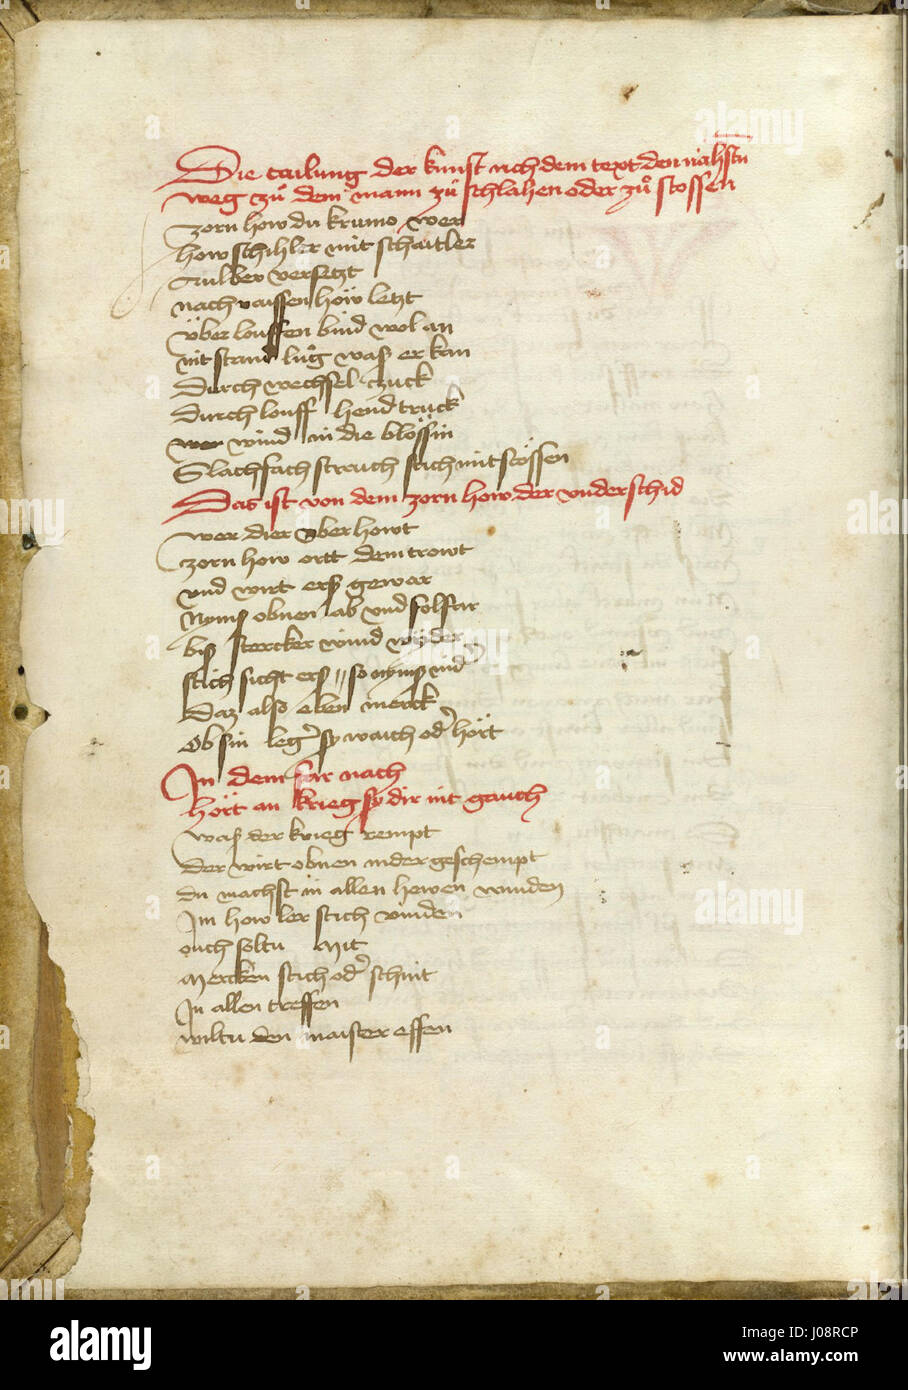 Die tailung der kunst nach dem text den nähstn
weg zů dem mann zů schlahen oder zů stossen
zorn how du krump wer
how schihler mit schaitler
Aulber versetzt
nach raissen höw letzt
über louffen bind wol an
nit stand lůg waß er kan
Durch wechsel zuck
durch louff hend truck
wind in die blössin
Slach fach streuch stich mit stössen
Das ist von dem zorn how der underschid
wer dier über howt
zorn how ortt dem trowt
und wirt erß gewar
Nymß obnen ab und fol far
biß stercker wind wyder
stich sicht erß so nymß nider
Daz also eben merck
Ob sin leger sy waich oder hört
In dem far nach
hört an krieg sy dir nit gauch
waß der krieg rempt
Der wirt obnen nider geschempt
du machst in allen hewen winden
Im how ler stich vinden
ouch soltu Mit
Mercken stich oder schnit
In allen treffen
wiltu den maister effen
alamy
Image ID: J08RCP
www.alamy.com